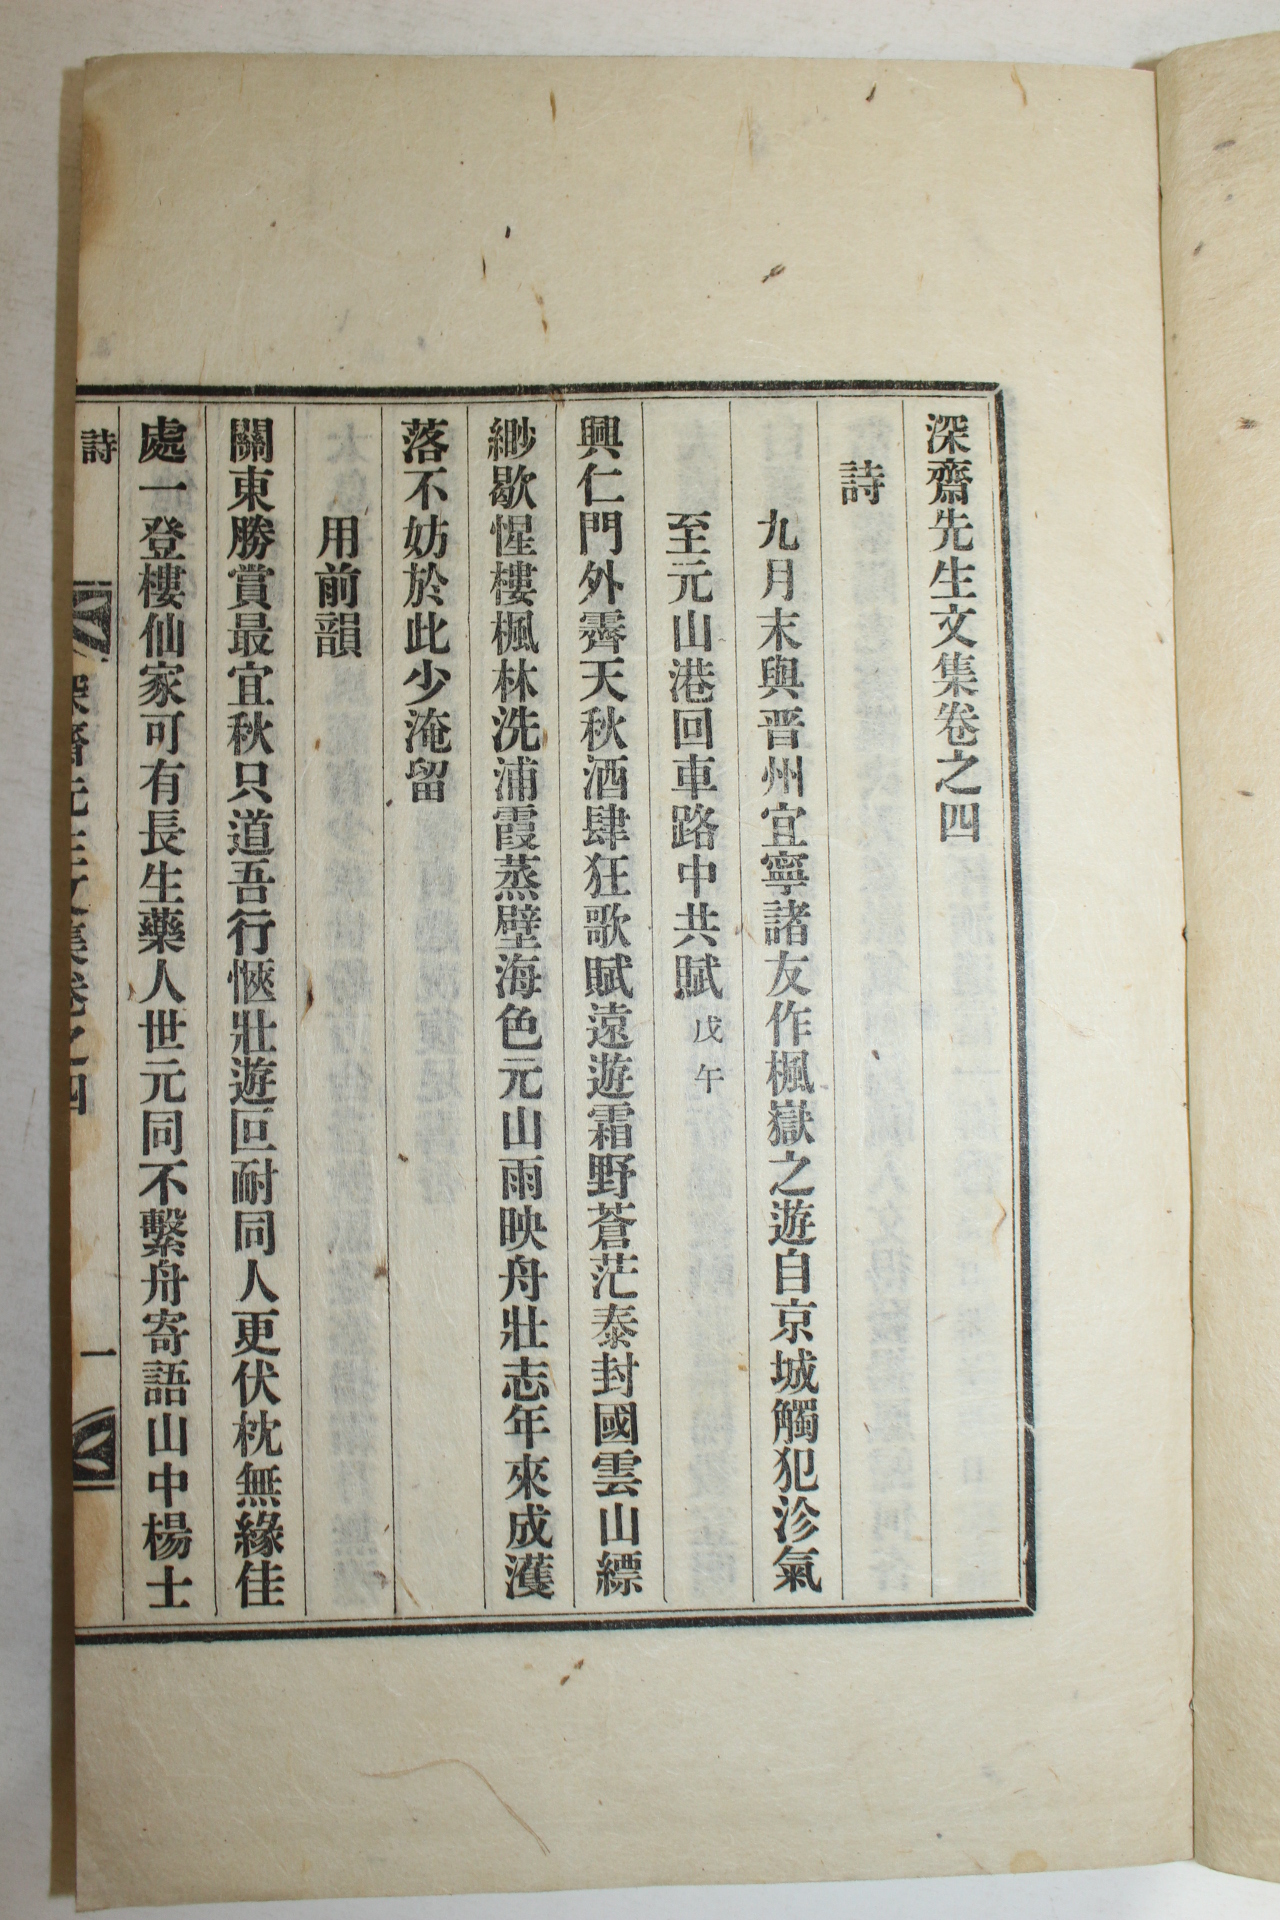 深齋先生文集卷之四
詩
九月末與晋州宜寧諸友作楓嶽之遊自京城觸犯沴氣
至元山港回車路中共賦 戊午
興仁門外霽天秋酒肆狂歌賦遠遊霜野蒼茫泰封國雲山縹
緲歇惺樓楓林洗浦霞蒸壁海色元山雨映舟壯志年來成濩
落不妨於此少淹留
用前韻
關東勝賞最宜秋只道吾行愜壯遊叵耐同人更伏枕無緣佳
處一登樓仙家可有長生藥人世元同不繫舟寄語山中楊士
詩 深齋先生文集卷之四 一